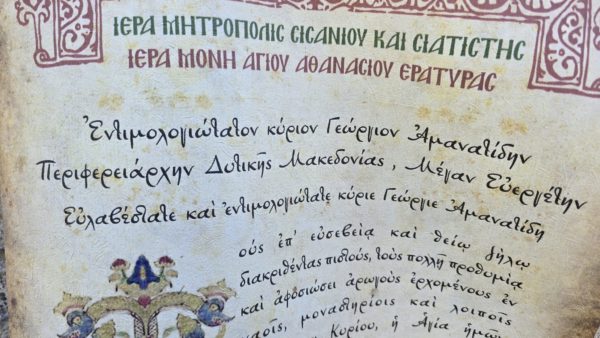 ΙΕΡΑ ΜΗΤΡΟΠΟΛΙΣ ΣΙΣΑΝΙΟΥ ΚΑΙ ΣΙΑΤΙΣΤΗΣ
ΙΕΡΑ ΜΟΝΗ ΑΓΙΟΥ ΑΘΑΝΑΣΙΟΥ ΕΡΑΤΥΡΑΣ
Ἐντιμολογιώτατον κύριον Γεώργιον Ἀμανατίδην
Περιφερειάρχην Δυτικῆς Μακεδονίας, Μέγαν Εὐεργέτην
Εὐλαβέστατε καὶ ἐντιμολογιώτατε κύριε Γεώργιε Ἀμανατίδη
οὕς ἐπ' εὐσεβείᾳ καὶ θείῳ ζήλῳ
διακριθέντας πιστούς, τοὺς πολλῇ προθυμίᾳ
καὶ ἀφοσιώσει ἀρωγοὺς ἐρχομένους ἐν
ναοῖς, μοναστηρίοις καὶ λοιποῖς
Κυρίου, ἡ Ἁγία ἡμῶν